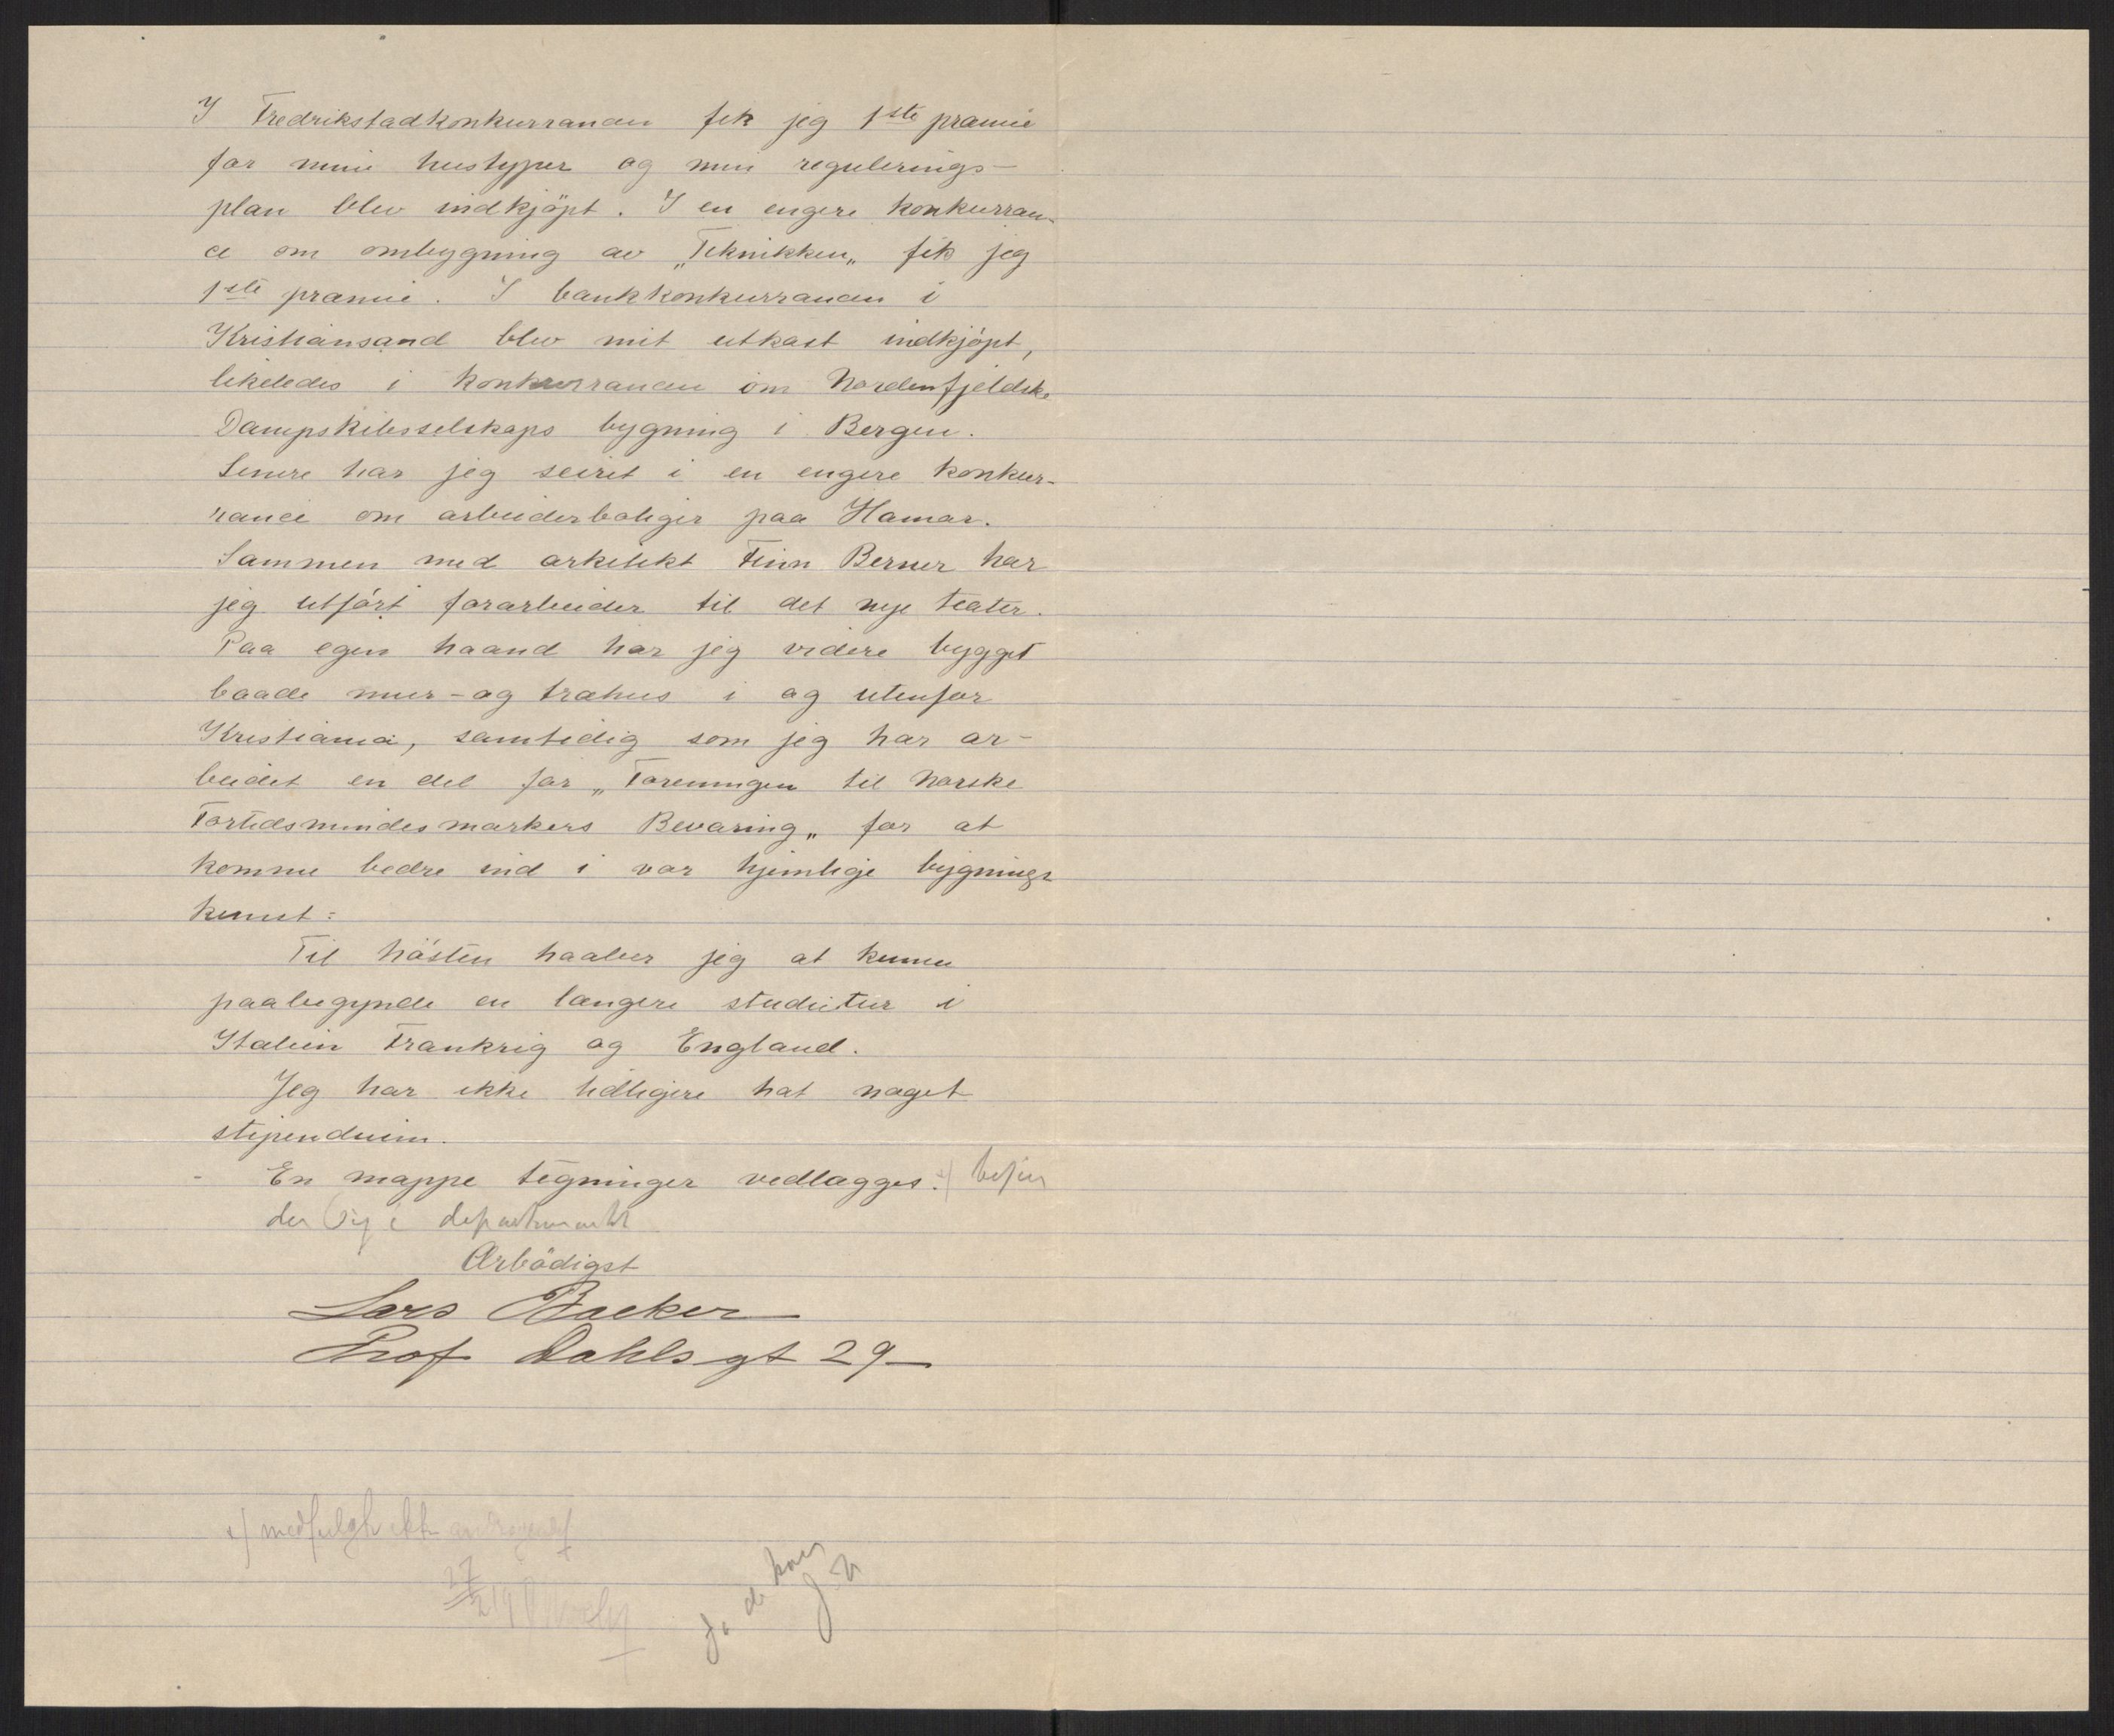 I Fredrikstadkonkurrancen fik jeg 1ste præmie
for mine hustyper og min regulerings-
plan blev indkjöpt. I en engere konkurran-
ce om ombygning av „Teknikken„ fik jeg
1ste præmie. I bankkonkurrancen i
Kristiansand blev mit utkast indkjöpt,
likeledes i konkurrancen om Nordenfjeldske
Dampskibsselskaps bygning i Bergen.
Senere har jeg seiret i en engere konkur-
rance om arbeiderboliger paa Hamar.
Sammen med arkitekt Finn Berner har
jeg utfört forarbeider til det nye teater.
Paa egen haand har jeg videre bygget
baade mur- og træhus i og utenfor
Kristiania, samtidig som jeg har ar-
beidet en del for „Foreningen til Norske
Fortidsmindesmærkers Bevaring„ for at
komme bedre ind i vor hjemlige bygnings
kunst:
Til hösten haaber jeg at kunne
paabegynde en længere studietur i
Italien Frankrig og England.
Jeg har ikke tidligere hat noget
stipendium.
En mappe tegninger vedlægges. x) befin
der sig i departementet
Ærbödigst
Lars Backer
Prof Dahls gt 29
x) medfulgte ikke andragendet
27/2 19
Ja de kom